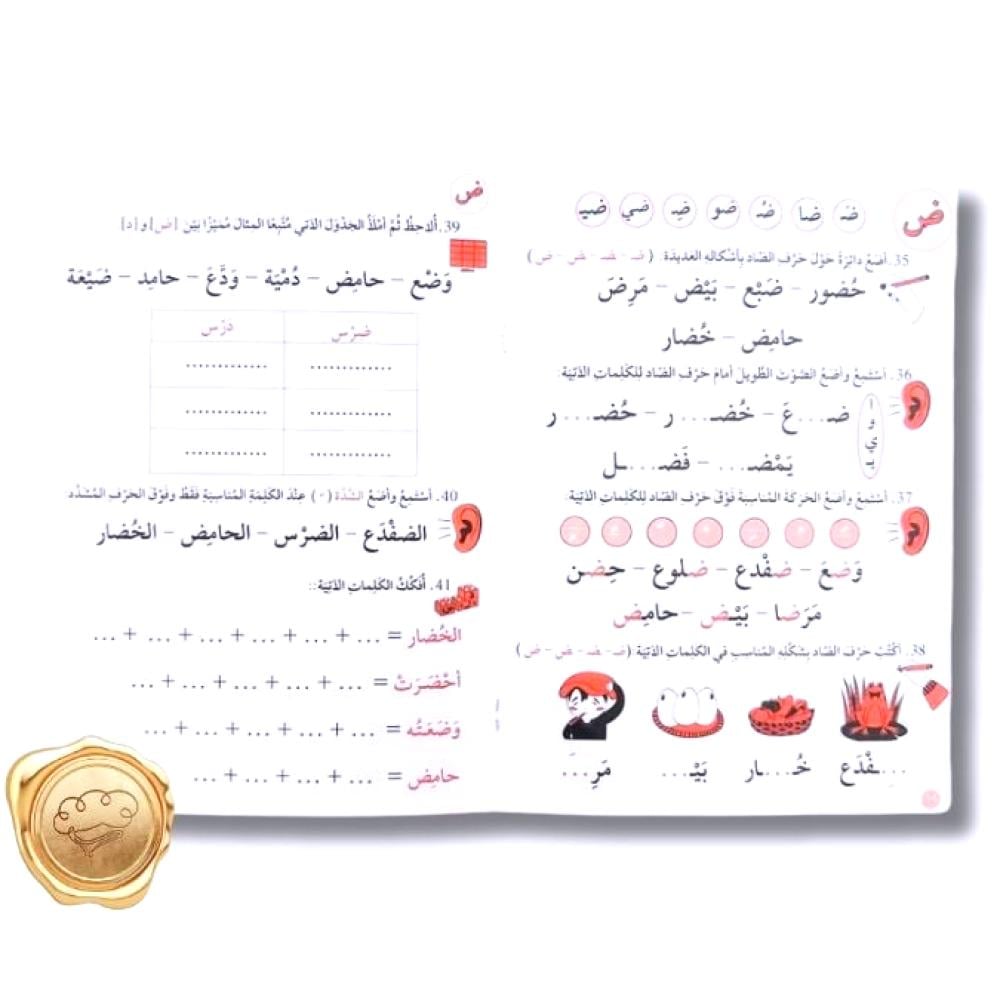 ض
ضَـ ضا ضُـ ضو ضِـ ضي ضيـ
35. أضَعُ دائِرَةً حَوْلَ حَرْفِ الضّاد بِأَشْكاله العَديدَة: ( ضـ - ـضـ - ـض - ض )
حُضور - ضَبْع - بَيْض - مَرِضَ
حامِض - خُضار
36. أسْتَمِعُ وأضَعُ الصَّوْتَ الطَّويلَ أمامَ حَرْفِ الضّاد لِلكَلِماتِ الآتِيَة:
ا
و
ي
يـ
ضـ...عَ - خُضـ...ر - حُضـ...ر
يَمْضـ... - فَضـ...ل
37. أسْتَمِعُ وأضَعُ الحَرَكَة المُناسِبة فَوْقَ حَرْفِ الضّاد لِلكَلِماتِ الآتِيَة:
وَضعَ - ضفْدع - ضلوع - حِضن
مَرَضا - بَيْـض - حامِض
38. أكْتُبُ حَرْفَ الضّاد بِشَكْلِهِ المُناسِبِ في الكَلِماتِ الآتِيَة ( ضـ - ـضـ - ـض - ض )
...ـفْدَع خُـ...ـار بَيْـ... مَرِ...َ
ض
39. ألاحِظُ ثُمَّ أمْلَأُ الجَدْوَلَ الآتي مُتَّبِعًا المِثالَ مُمَيِّزًا بَيْن [ض] و[د]
وَضْع - حامِض - دُمْيَة - وَدَّعَ - حامِد - ضَيْعَة
ضِرْس دَرْس
............. .............
............. .............
............. .............
40. أسْتَمِعُ وأضَعُ الشَّدَّة ( ّ ) عِنْدَ الكَلِمَةِ المُناسِبَةِ فَقَطْ وفَوْقَ الحَرْفِ المُشَدَّد
الضفْدَع - الضرْس - الحامِض - الخُضار
41. أُفَكِّكُ الكَلِماتِ الآتِيَة::
الخُضار = ... + ... + ... + ... + ... + ...
أحْضَرَتْ = ... + ... + ... + ... + ...
وَضَعَتْه = ... + ... + ... + ... + ...
حامِض = ... + ... + ... + ...